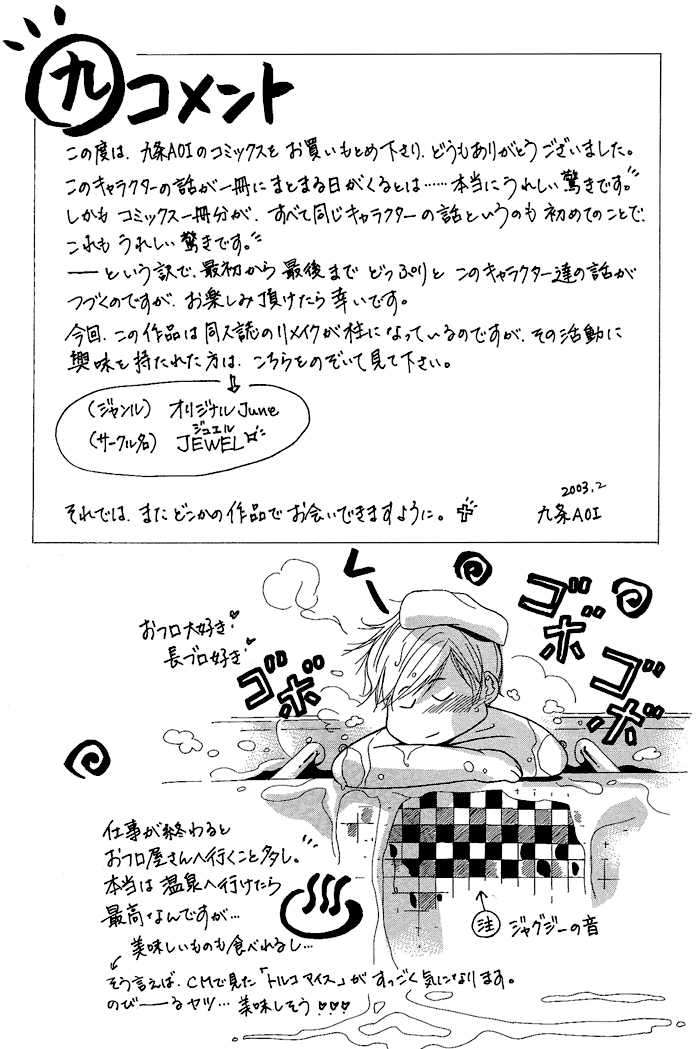 九 コメント
この度は、九条AOIのコミックスをお買いもとめ下さり、どうもありがとうございました。
このキャラクターの話が一冊にまとまる日がくるとは……本当にうれしい驚きです。
しかもコミックス一冊分が、すべて同じキャラクターの話というのも初めてのことで、
これもうれしい驚きです。
――という訳で、最初から最後までどっぷりとこのキャラクター達の話が
つづくのですが、お楽しみ頂けたら幸いです。
今回、この作品は同人誌のリメイクが柱になっているのですが、その活動に
興味を持たれた方は、こちらをのぞいて見て下さい。
(ジャンル) オリジナルJune
ジュエル
(サークル名) JEWEL
それでは、またどこかの作品でお会いできますように。
2003.2
九条AOI
おフロ大好き♥
長ブロ好き♥
くー
ゴボゴボ
ゴボ
仕事が終わると
おフロ屋さんへ行くこと多し。
本当は温泉へ行けたら
最高なんですが…
美味しいものも食べれるし…
注 ジャグジーの音
そう言えば、CMで見た「トルコアイス」がすっごく気になります。
のび――るヤツ…美味しそう♥♥♥